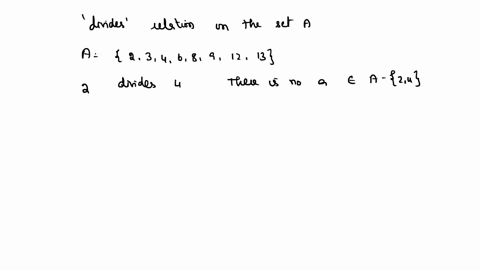 'divides' relation on the set A
A = { 2, 3, 4, 6, 8, 9, 12, 13 }
2 divides 4 There is no a ∈ A - {2,4}